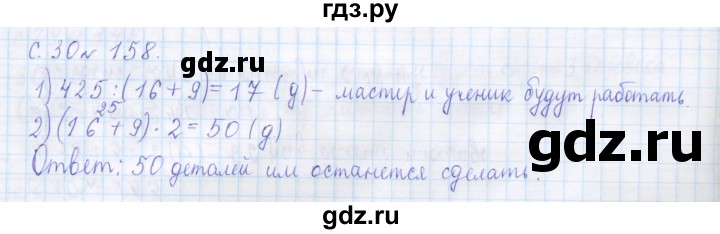 гдз.ру
с. 30 № 158.
gdz.ru
gdz.ru
1) 425 : (16 + 9) = 17 (д) – мастир и ученик будут работать.
25
2) (16 + 9) · 2 = 50 (д)
Ответ: 50 деталей им останется сделать.
gdz.ru
gdz.ru